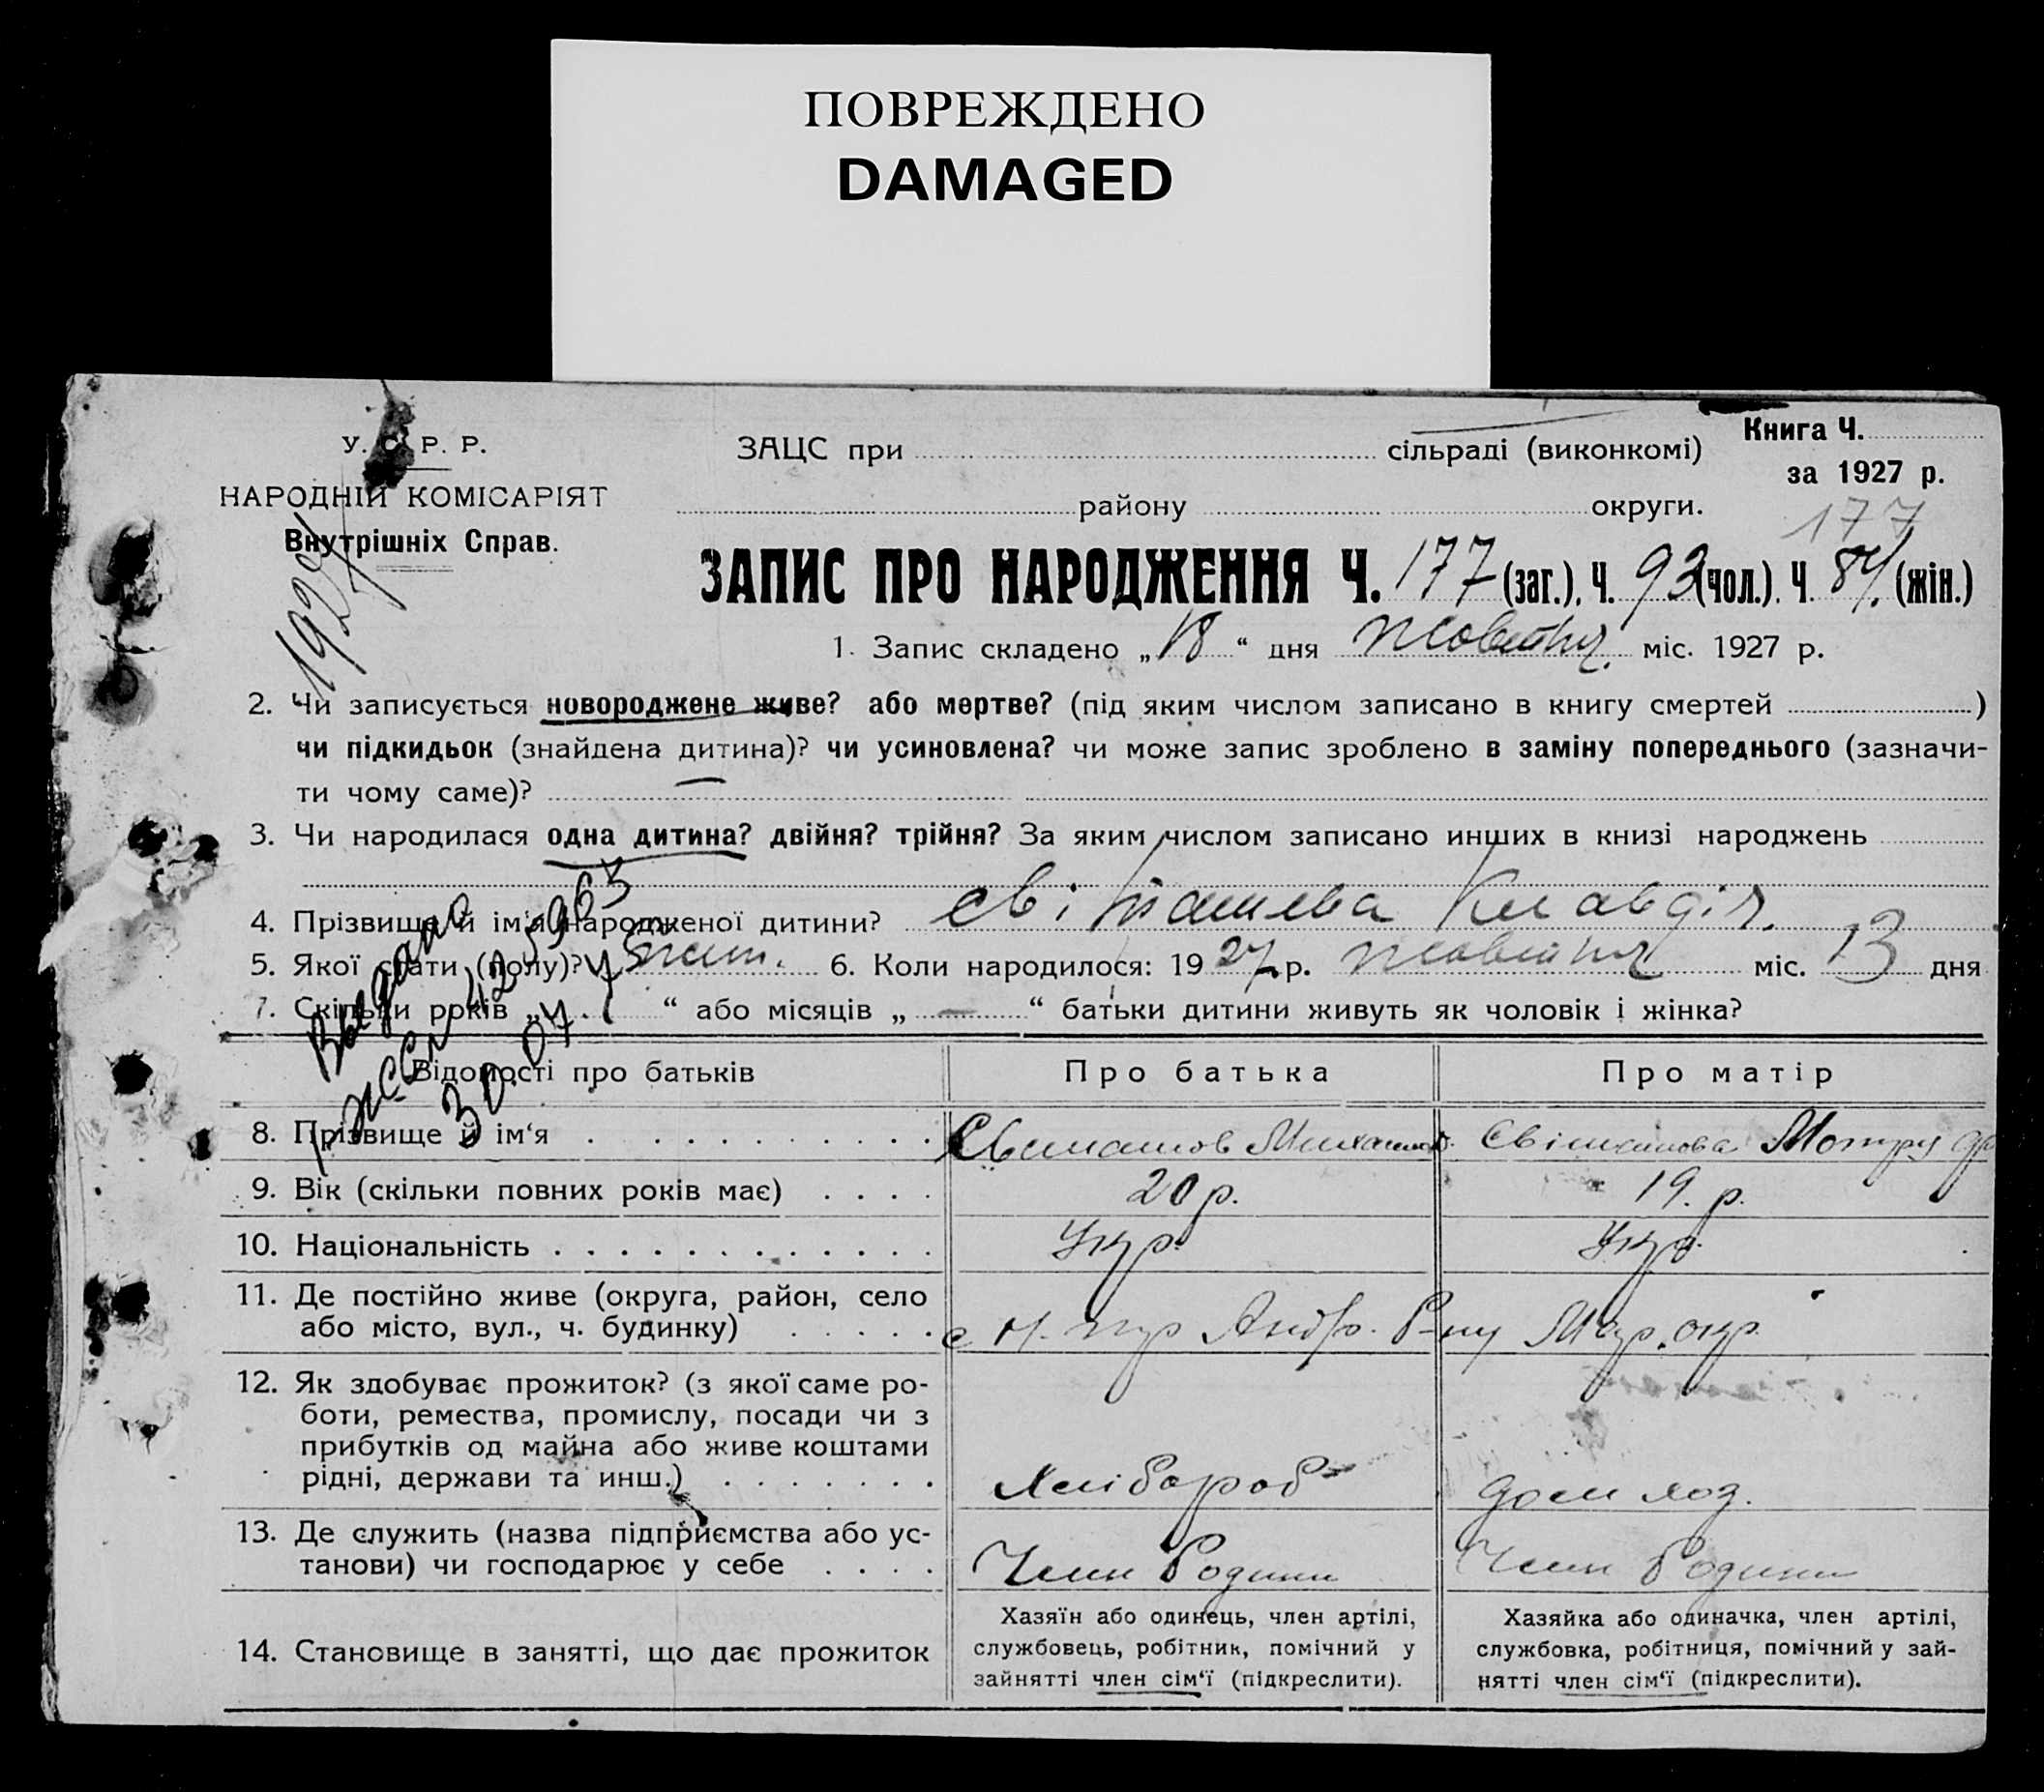 ПОВРЕЖДЕНО
DAMAGED
У. С. Р. Р.
НАРОДНІЙ КОМІСАРІЯТ
Внутрішніх Справ.
ЗАЦС при сільраді (виконкомі)
Книга Ч.
за 1927 р.
району округи.
177
ЗАПИС ПРО НАРОДЖЕННЯ Ч. 177 (заг.), Ч. 93 (чол.). Ч. 84. (жін.)
1927
1. Запис складено „18“ дня жовтня міс. 1927 р.
2. Чи записується новороджене живе? або мертве? (під яким числом записано в книгу смертей )
чи підкидьок (знайдена дитина)? чи усиновлена? чи може запис зроблено в заміну попереднього (зазначи-
ти чому саме)? —
3. Чи народилася одна дитина? двійня? трійня? За яким числом записано инших в книзі народжень
4. Прізвище й ім‘я народженої дитини? Світашева Клавдія.
5. Якої стати (полу)? жін. 6. Коли народилося: 1927 р. жовтня міс. 13 дня
7. Скільки років „ “ або місяців „ — “ батьки дитини живуть як чоловік і жінка?
Выдано
30.04
Відомості про батьків
Про батька
Про матір
8. Прізвище й ім‘я Світашов Світашова Мотря
9. Вік (скільки повних років має) 20 р. 19. р.
10. Національність Укр. Укр.
11. Де постійно живе (округа, район, село
або місто, вул., ч. будинку) с Андр. Р-ну Мар. окр.
12. Як здобуває прожиток? (з якої саме ро-
боти, ремества, промислу, посади чи з
прибутків од майна або живе коштами
рідні, держави та инш.) Хлібороб дом хоз.
13. Де служить (назва підприємства або ус-
танови) чи господарює у себе Член Родини Член Родини
14. Становище в занятті, що дає прожиток
Хазяїн або одинець, член артілі,
службовець, робітник, помічний у
зайнятті член сім‘ї (підкреслити).
Хазяйка або одиначка, член артілі,
службовка, робітниця, помічний у зай-
нятті член сім‘ї (підкреслити).